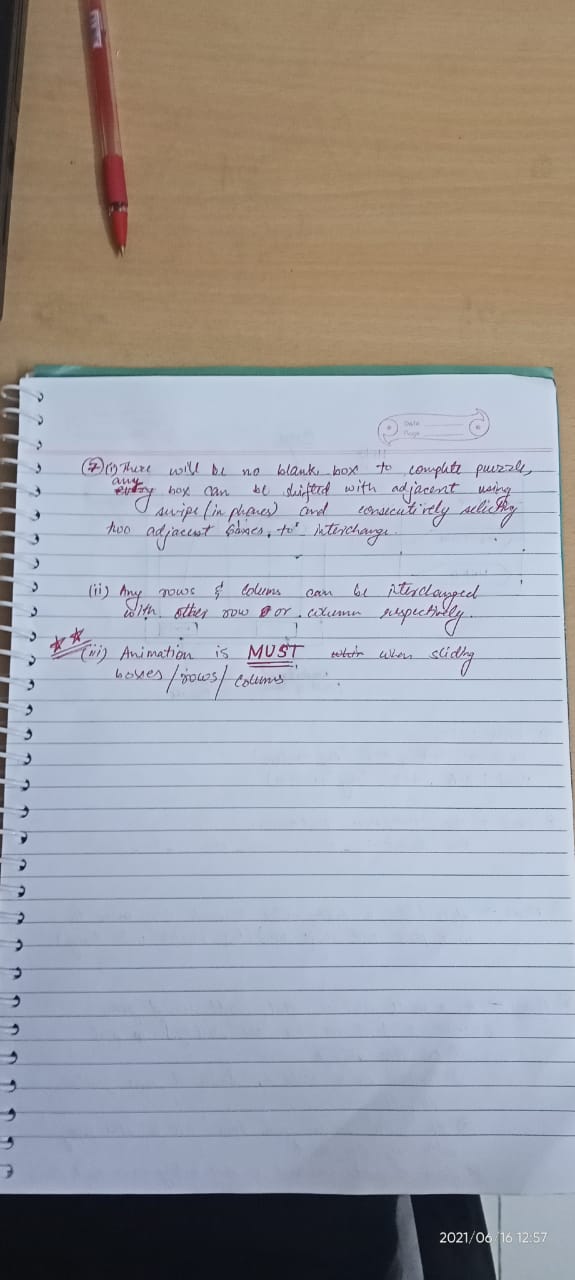 Date
Page
⑦ (i) There will be no blank box to complete puzzle,
any
every box can be shifted with adjacent using
swipe (in phones) and consecutively selecting
two adjacent boxes, to interchange.
(ii) Any rows & colums can be interchanged
with other row or column respectively.
** (iii) Animation is MUST when sliding
boxes / rows / colums
2021/06/16 12:57